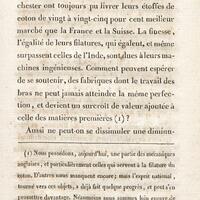 chester ont toujours pu livrer leurs étoffes de
coton de vingt à vingt-cinq pour cent meilleur
marché que la France et la Suisse. La finesse,
l'égalité de leurs filatures, qui égalent, et même
surpassent celles de l'Inde, sont dues à leurs ma-
chines ingénieuses. Comment peuvent espérer
de se soutenir, des fabriques dont le travail des
bras ne peut jamais atteindre la même perfec-
tion, et devient un surcroît de valeur ajoutée à
celle des matières premières (1)?
Aussi ne peut-on se dissimuler une diminu-
(1) Nous possédons, aujourd'hui, une partie des mécaniques
anglaises, et particulièrement celles qui servent à la filature du
coton. D'autres nous manquent encore; mais l'esprit national,
tourné vers ces objets, a déjà fait quelque progrès, et peut s'en
promettre davantage. Néanmoins